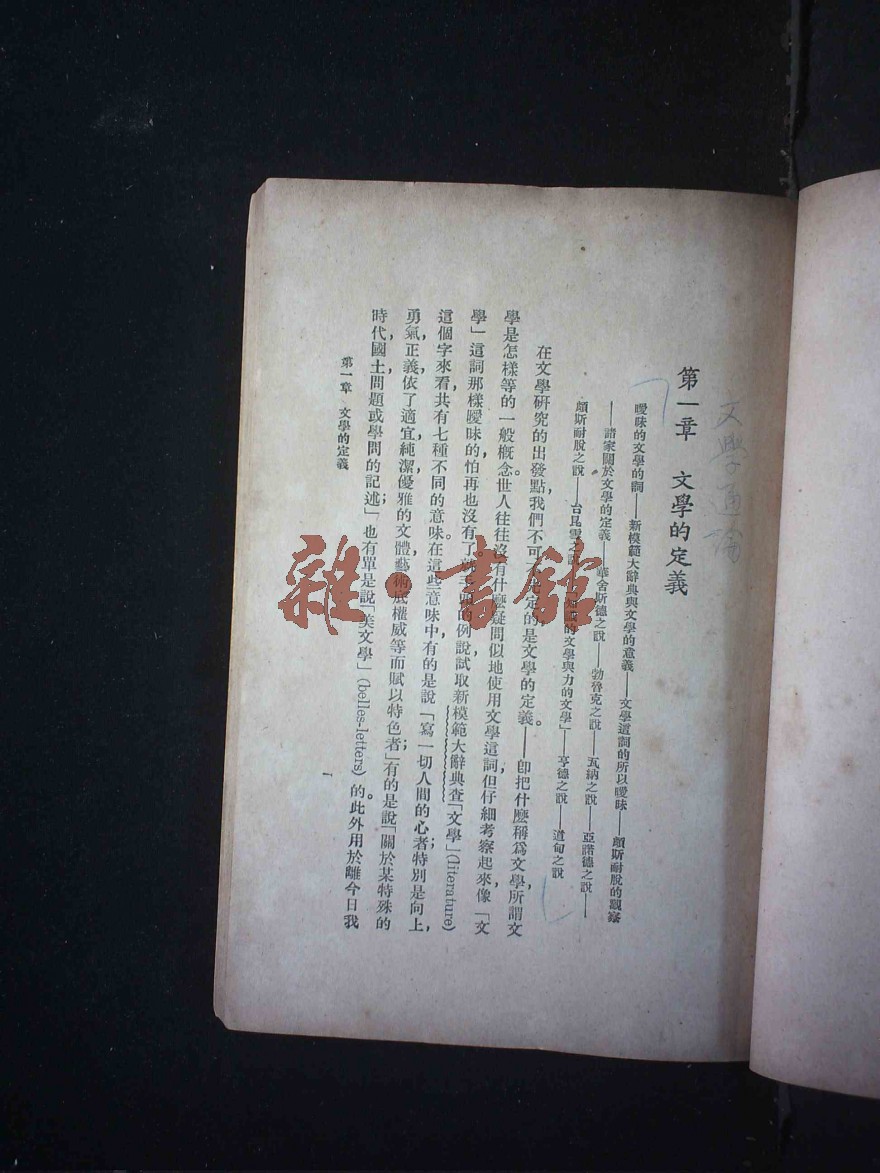 文學通論
第一章　文學的定義
曖昧的文學的詞——新模範大辭典與文學的意義——文學這詞的所以曖昧——頗斯耐脫的觀察
——諸家關於文學的定義——華舍斯德之說——勃魯克之說——瓦納之說——亞諾德之說——
頗斯耐脫之說——台昆雪之說——的文學與力的文學」——亨德之說——道甸之說
在文學研究的出發點，我們不可定的是文學的定義。——卽把什麼稱爲文學，所謂文
學是怎樣等的一般概念。世人往往沒有什麼疑問似地使用文學這詞，但仔細考察起來，像「文
學」這詞那樣曖昧的，怕再也沒有了。的例說，試取新模範大辭典查「文學」(literature)
這個字來看，共有七種不同的意味。在這些意味中，有的是說「寫一切人間的心者，特別是向上，
勇氣，正義，依了適宜，純潔，優雅的文體，藝術底權威等而賦以特色者」；有的是說「關於某特殊的
時代，國土，問題或學問的記述」；也有單是說「美文學」(belles-letters)的。此外用於離今日我
第一章　文學的定義
一
雜·書館